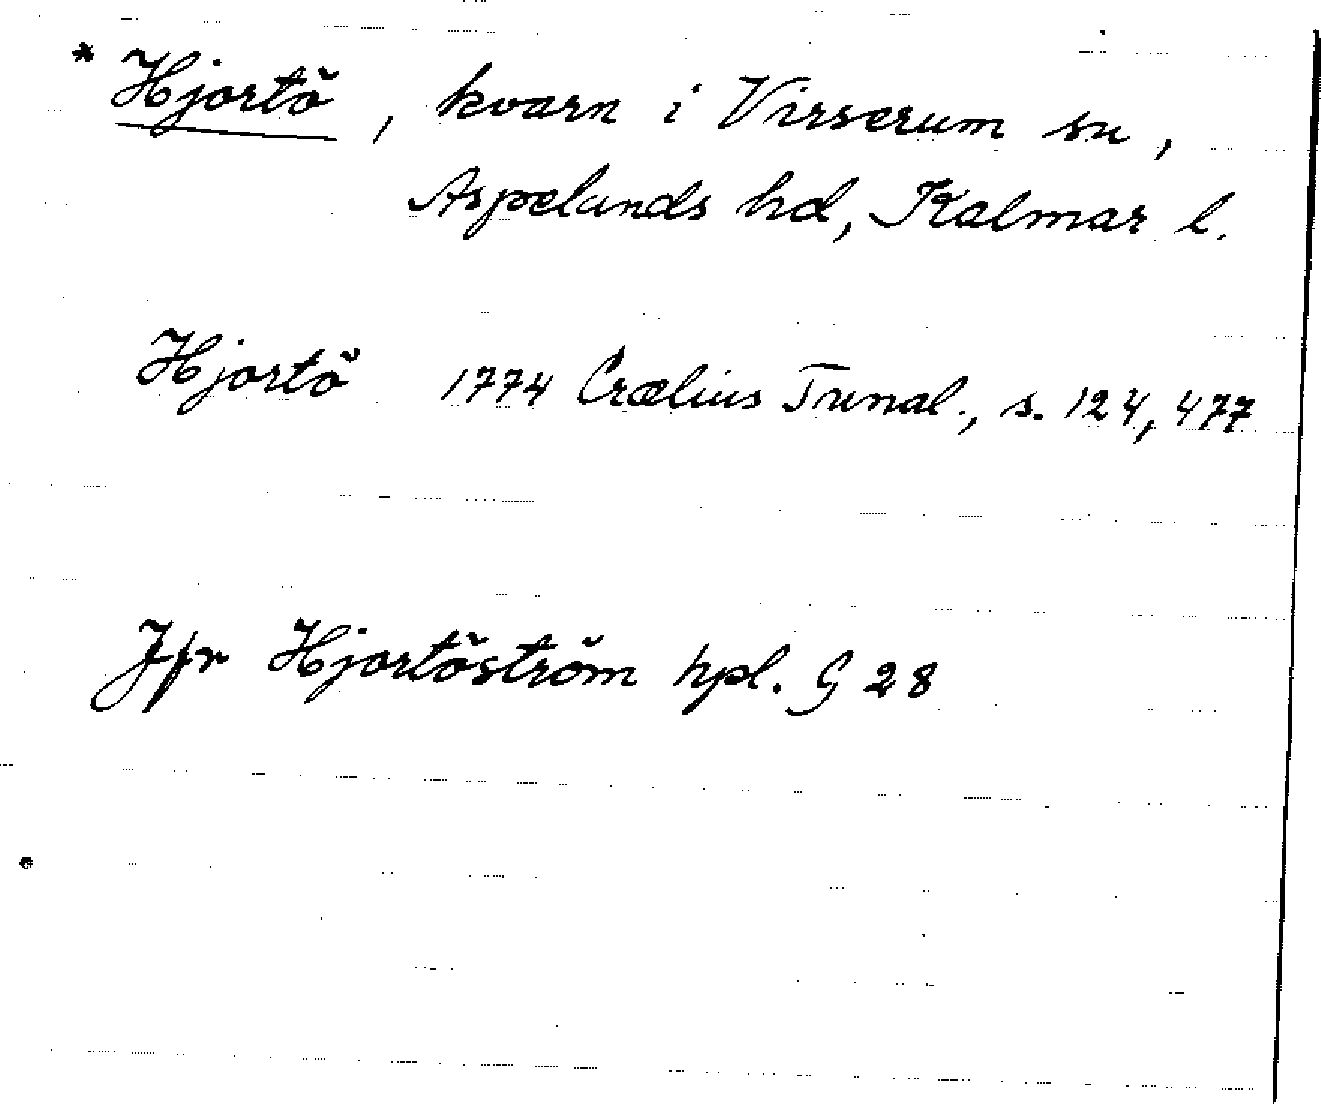 * Hjortö, kvarn i Virserum sn,
Aspelands hd, Kalmar l.
Hjortö 1774 Crælius Tunal., s. 124, 477
Jfr Hjortöström hpl. G 28